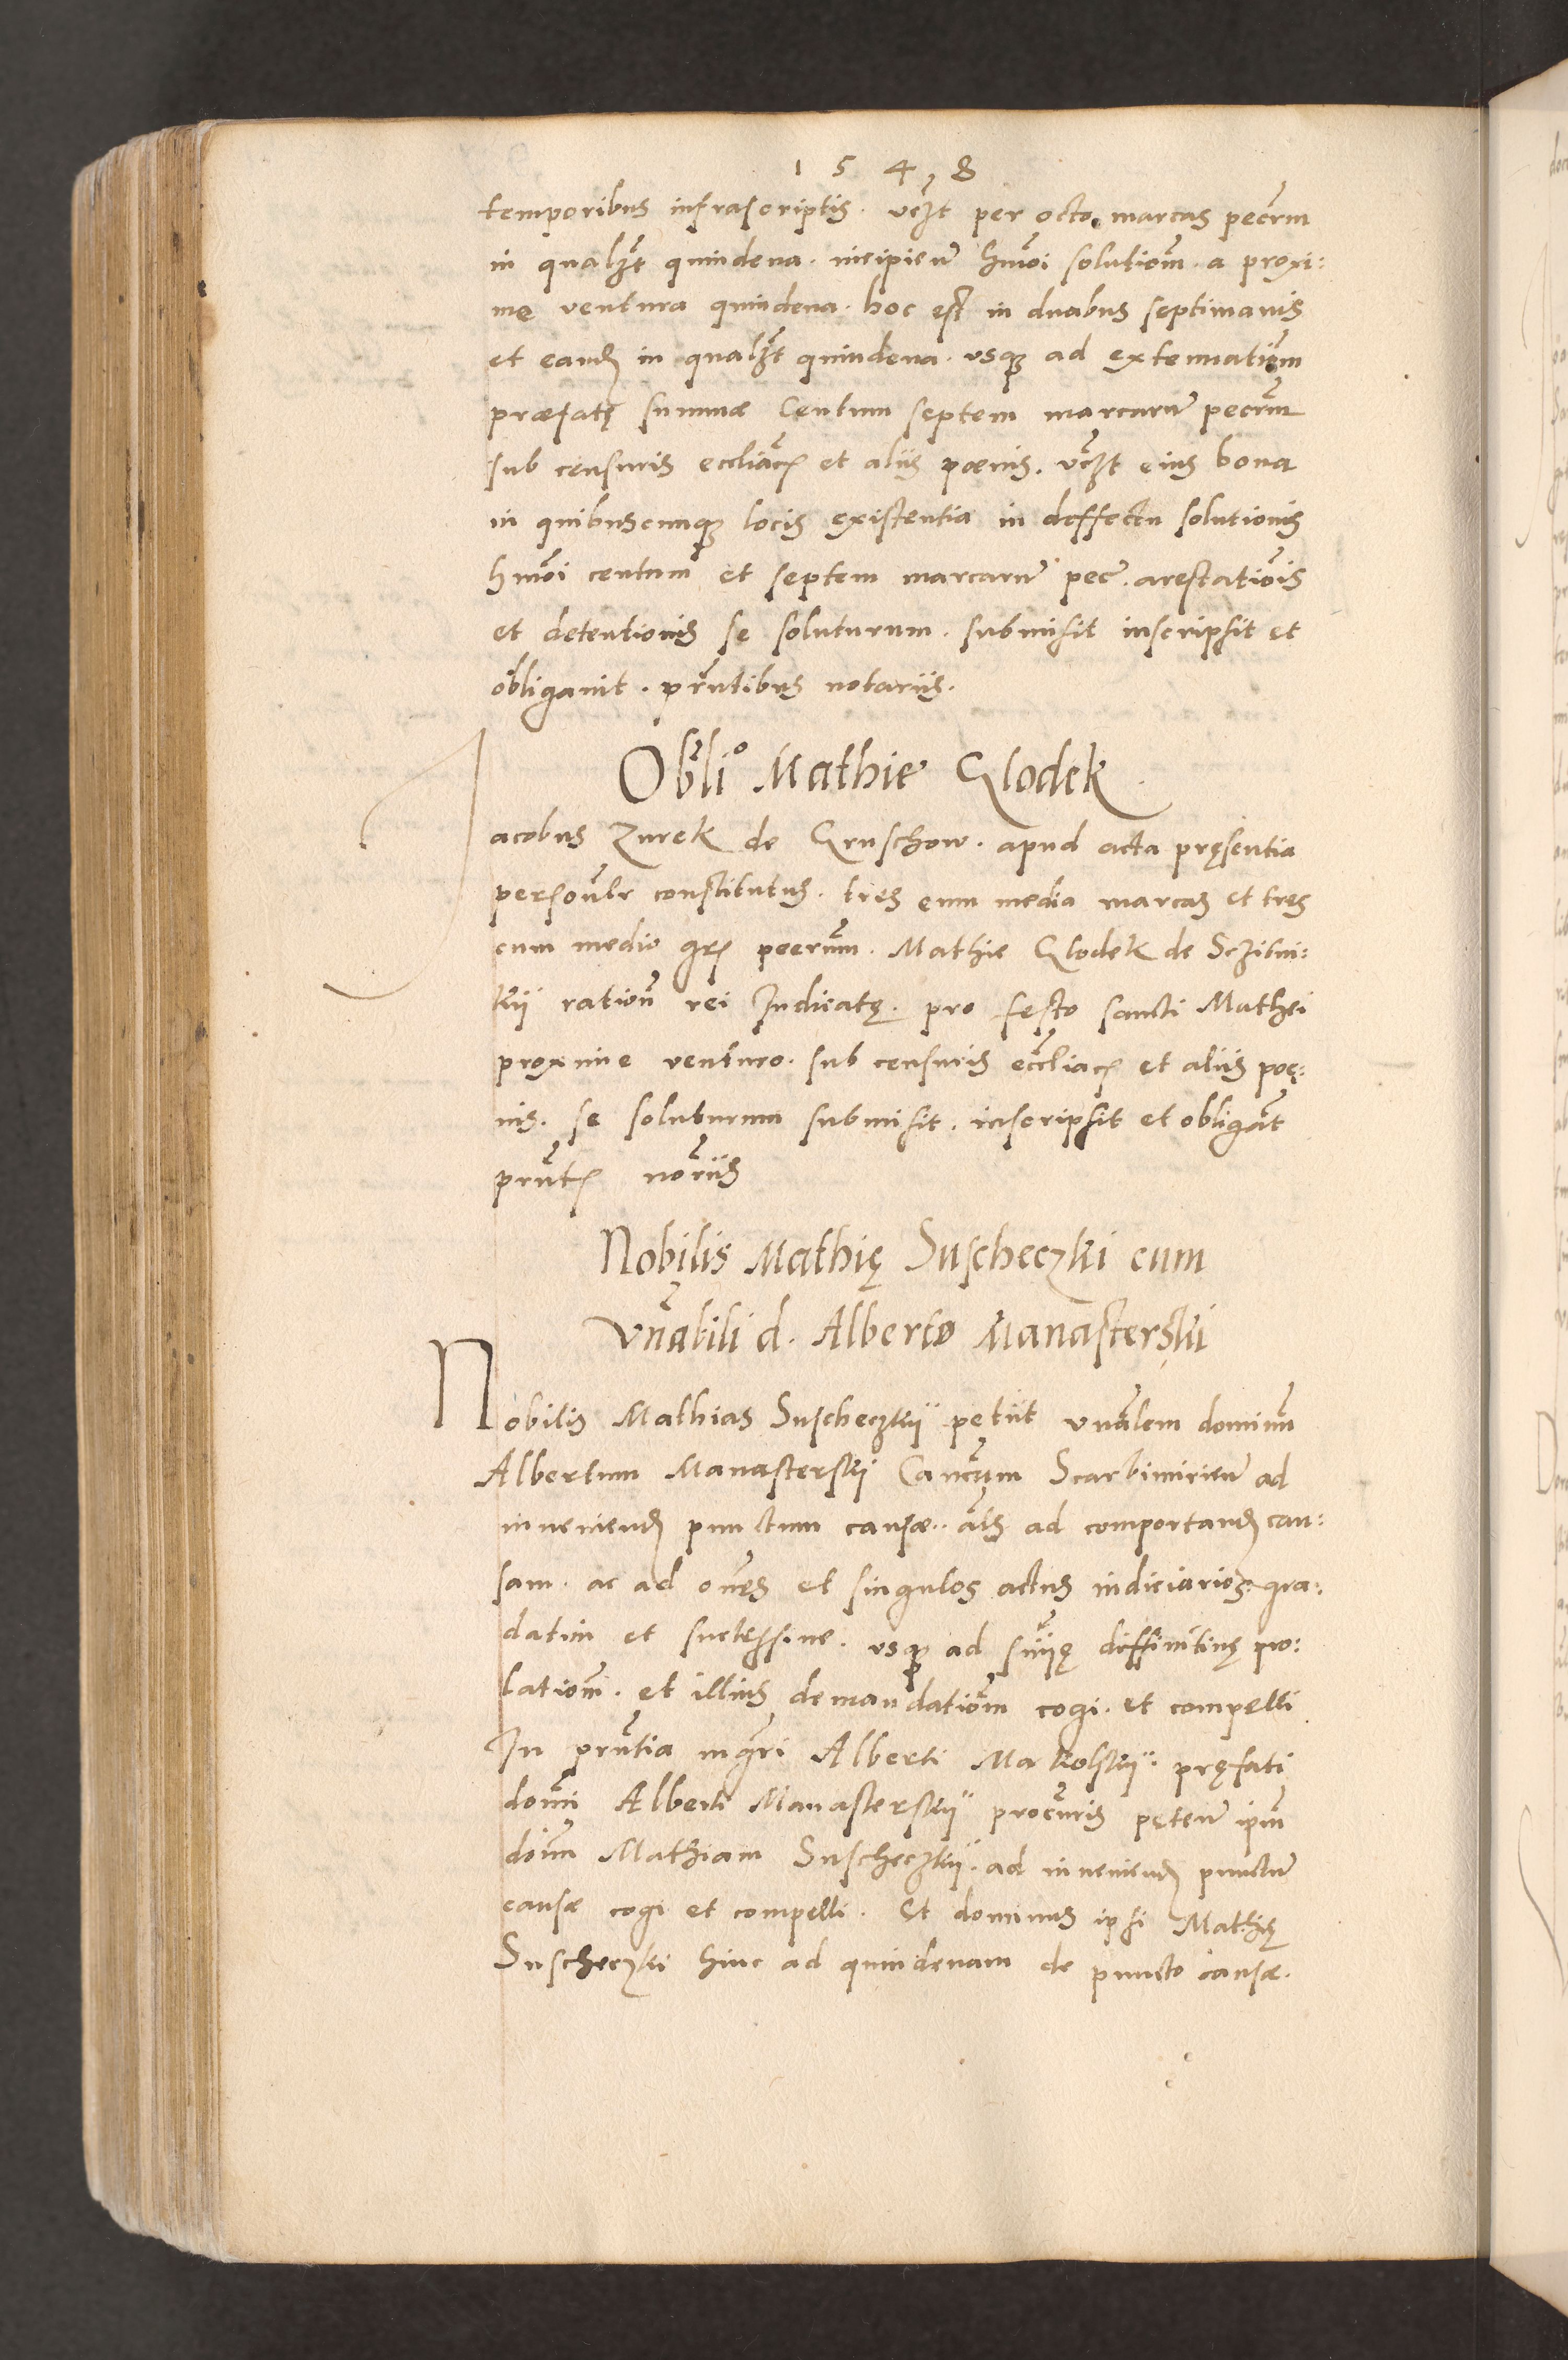 1 5 4 8
temporibus infrascriptis. vczt per octo marcas pecrm
in qualzt quindena. incipien hmoi solutiom a proxi:
me ventura quindena. hoc est in duabus septimanis
et eand in qualzt quindena. vsq ad extenuatiom
præfatę summæ Centum septem marcaru pecrm
sub censuris eccliacs et aliis pœnis. vczt eius bona
in quibuscunq locis existentia in deffectu solutionis
hmoi centum et septem marcaru pec. arestatiois
et detentionis se soluturum. submisit inscripsit et
obligauit. prntibus notariis.
Oblio Mathie Glodek
Jacobus Zurek de Gruschow. apud acta pręsentia
personalr constitutus. tres cum media marcas et tres
cum medio grs pecrum. Mathie Glodek de Sczitni:
kii ration rei Iudicatę. pro festo sancti Mathei
proxime venturo. sub censuris eccliacs et aliis poę:
nis. se soluturum submisit. inscripsit et obligat
prnts noriis
Nobilis Mathię Suscheczki cum
vnabili d. Alberto Manasterskii
Nobilis Mathias Suscheczkii petiit vnalem dominu
Albertum Manasterskii Cancum Scarbimirien ad
inueniend punctum causæ. als ad comportand cau:
sam. ac ad ones et singulos actus iudiciarios. gra:
datim et successiue. vsq ad sniię diffinitiuę pro:
lationem. et illius demandatiom cogi. et compelli
In prntia mgri Alberti Makolskii. pręfati
domi Alberti Manasterskii procuris peten ipm
doim Mathiam Suscheczkii. ad inueniend punctu
causæ cogi et compelli. Et dominus ipsi Mathię
Suscheczki hinc ad quindenam de puncto causæ.